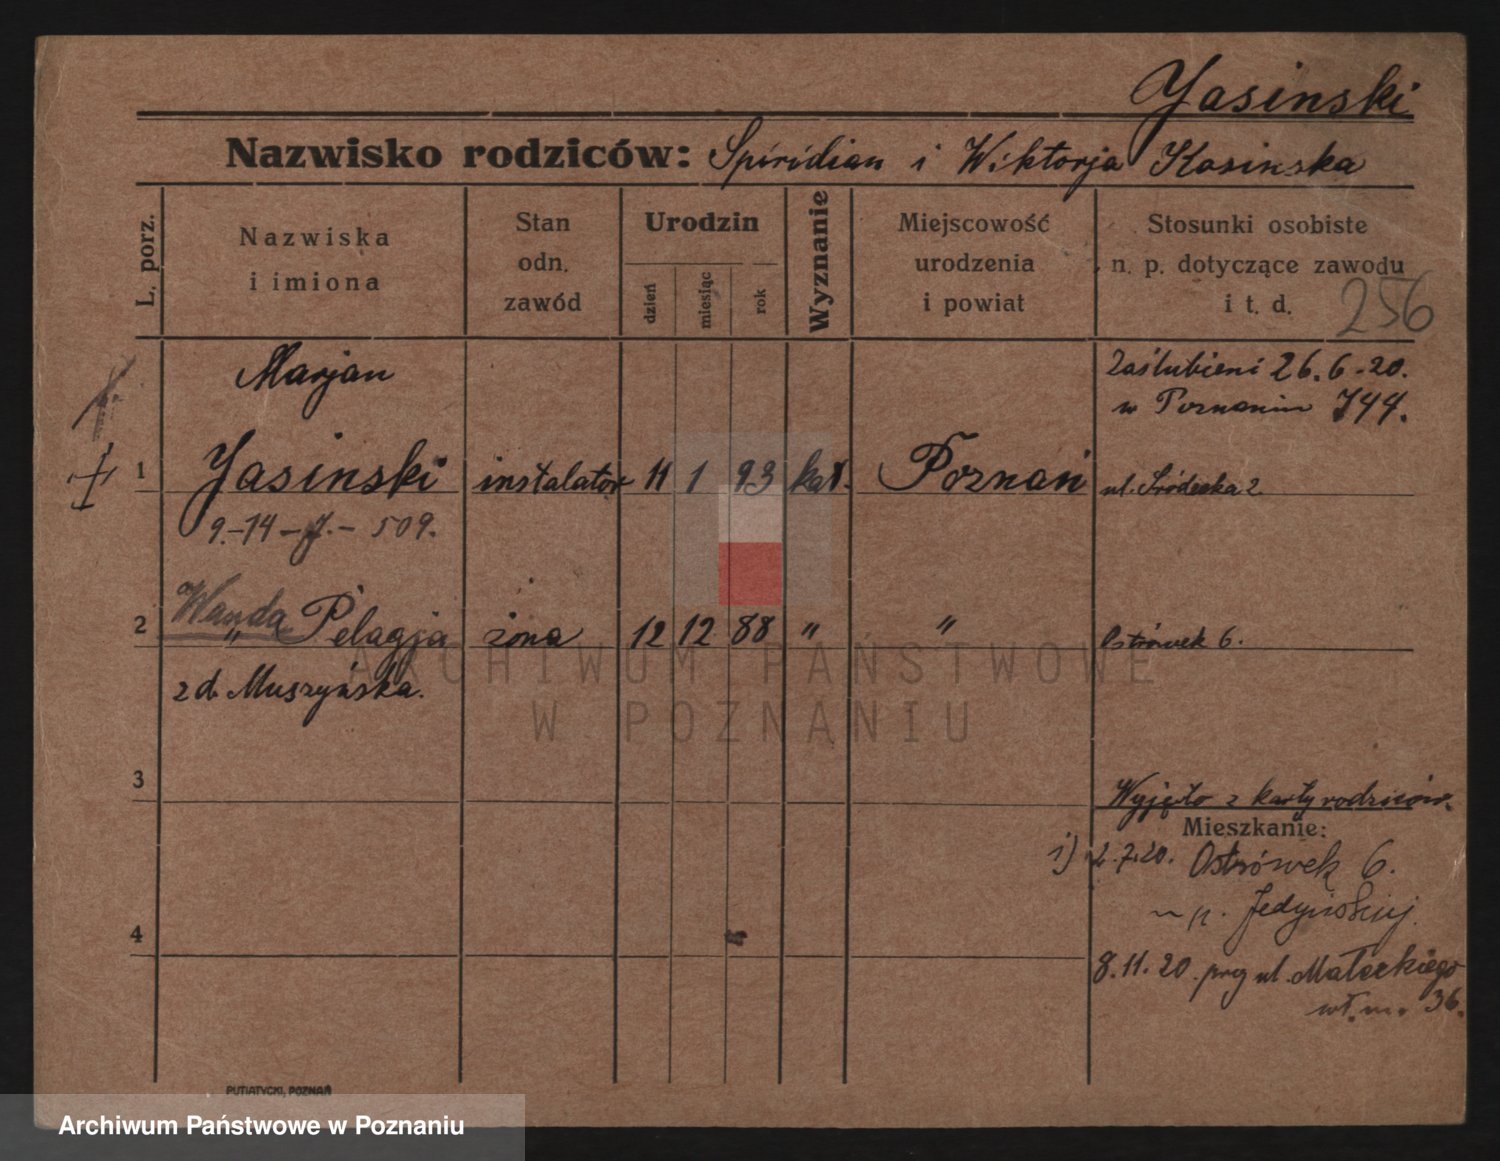 Yasinski
Nazwisko rodziców: Spiridian i Wiktorja Kasinska
L. porz.
Nazwiska
i imiona
Stan
odn.
zawód
Urodzin
dzień
miesiąc
rok
Wyznanie
Miejscowość
urodzenia
i powiat
Stosunki osobiste
n. p. dotyczące zawodu
i t. d.
256
Marjan
Zaślubieni 26.6.20.
w Poznaniu 744.
1 Yasinski instalator 11 1 93 kat. Poznań ul. Śródecka 2.
9.-14- J.- 509.
2 Wanda " Pelagja żona 12 12 88 " " Ostrówek 6.
z d. Muszyńska.
3
Wyjęto z karty rodziców.
Mieszkanie:
1) 2.7.20. Ostrówek 6.
4
8.11.20. przy ul. Małeckiego
36.
ARCHIWUM PAŃSTWOWE
W POZNANIU
PUTIATYCKI, POZNAŃ
Archiwum Państwowe w Poznaniu